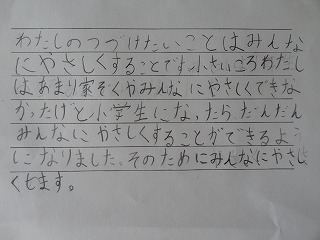 わたしのつづけたいことはみんな
にやさしくすることです。小さいころわたし
はあまり家ぞくやみんなにやさしくできな
かったけど小学生になったらだんだん
みんなにやさしくすることができるよう
になりました。そのためにみんなにやさし
くします。